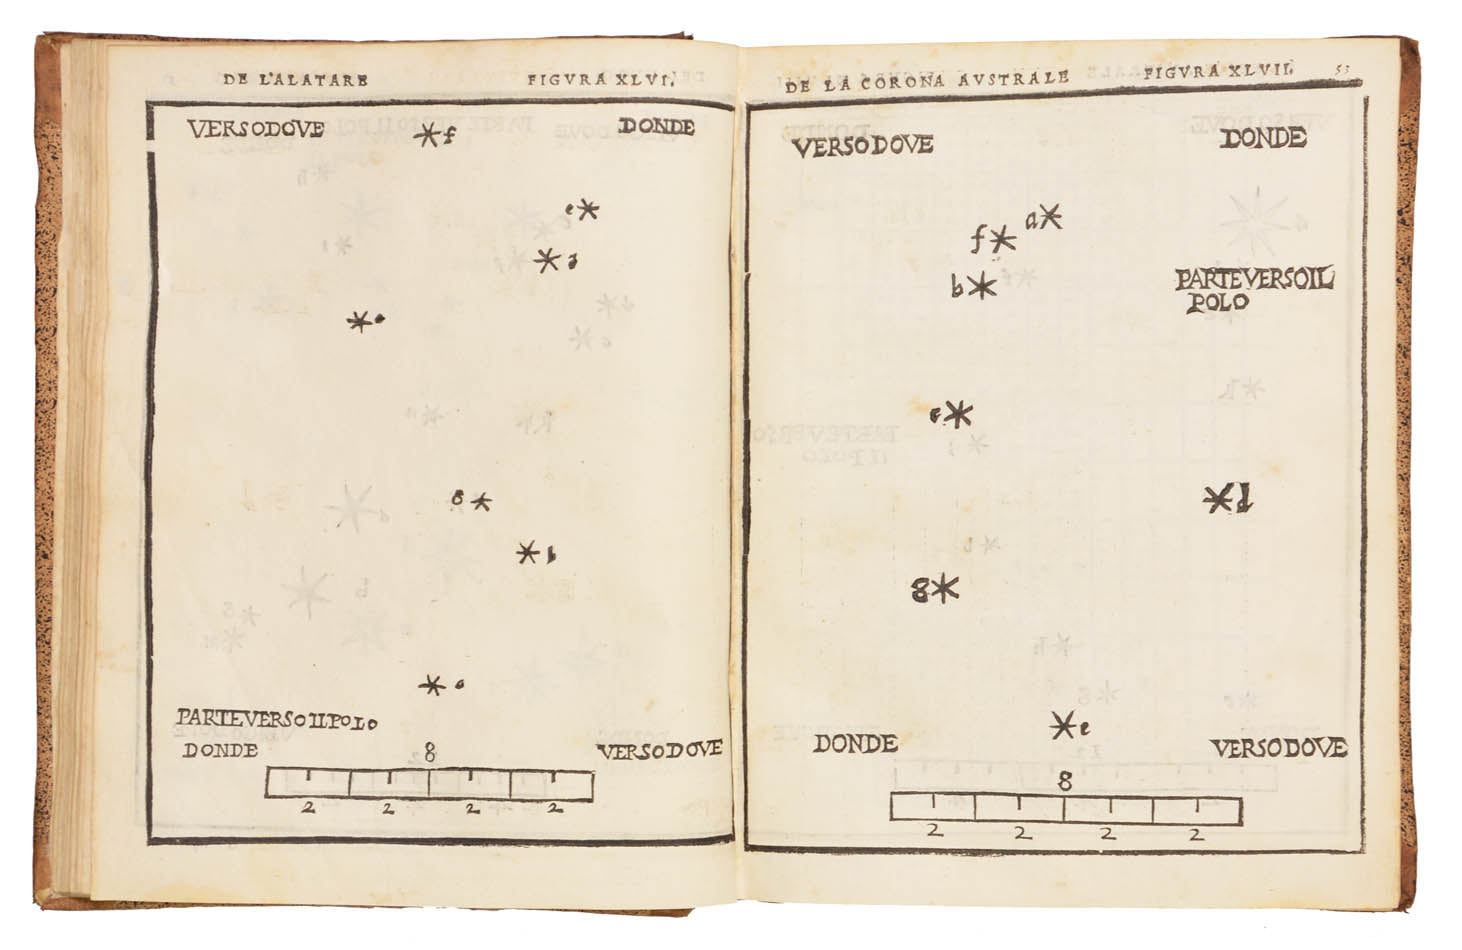 DE L'ALATARE FIGVRA XLVI.
VERSO DOVE f DONDE
e
8
PARTE VERSO IL POLO
DONDE 8 VERSO DOVE
2 2 2 2
DE LA CORONA AVSTRALE FIGVRA XLVII. 53
VERSO DOVE DONDE
a
f
b PARTE VERSO IL
POLO
g
e
DONDE VERSO DOVE
8
2 2 2 2